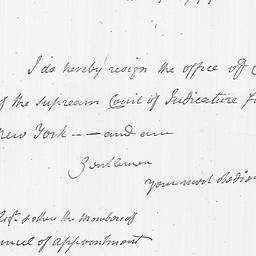 I do hereby resign the office of C
of the supream Court of Judicature f
New York -- and am
Gentlemen
your most obedian
& other the Members of
uncel of appointment